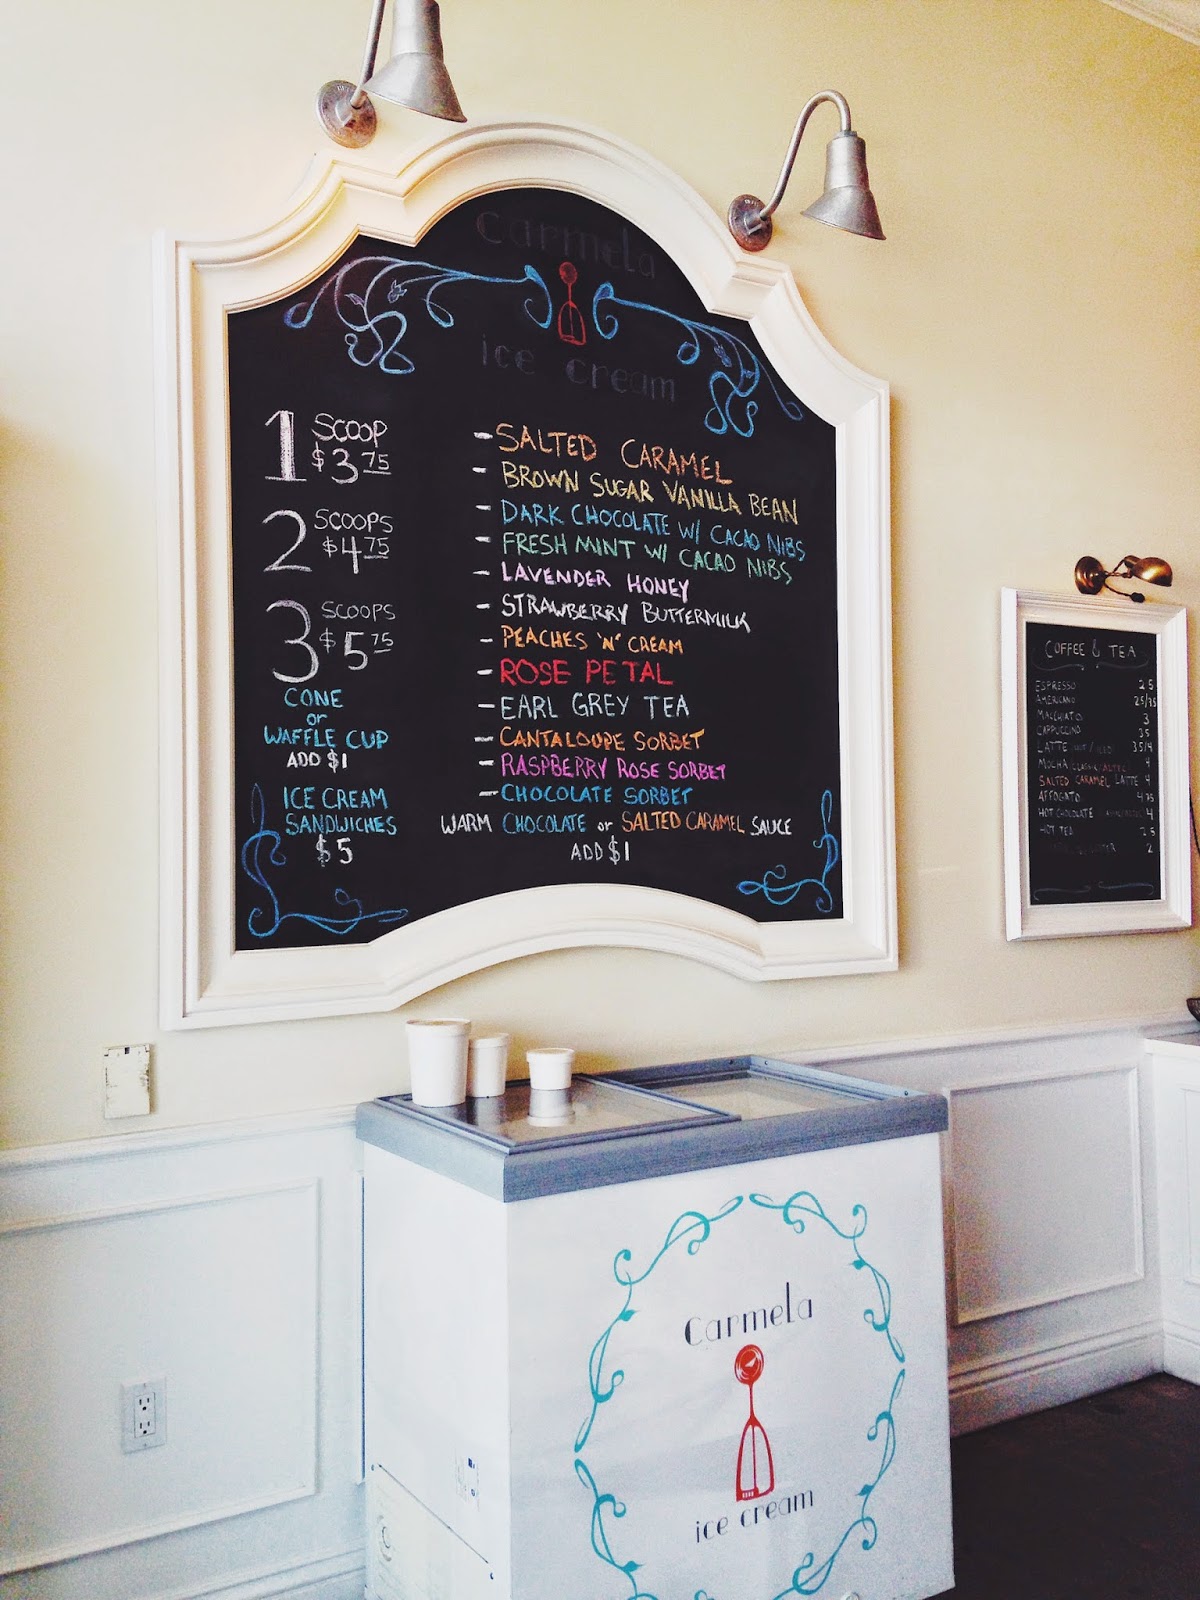 carmela
ice cream
1 SCOOP
$3.75
2 SCOOPS
$4.75
3 SCOOPS
$5.75
CONE
or
WAFFLE CUP
ADD $1
ICE CREAM
SANDWICHES
$5
- SALTED CARAMEL
- BROWN SUGAR VANILLA BEAN
- DARK CHOCOLATE W/ CACAO NIBS
- FRESH MINT W/ CACAO NIBS
- LAVENDER HONEY
- STRAWBERRY BUTTERMILK
- PEACHES 'N' CREAM
- ROSE PETAL
- EARL GREY TEA
- CANTALOUPE SORBET
- RASPBERRY ROSE SORBET
- CHOCOLATE SORBET
WARM CHOCOLATE or SALTED CARAMEL SAUCE
ADD $1
COFFEE & TEA
ESPRESSO 2.5
AMERICANO
MACCHIATO 3
CAPPUCCINO 3.5
LATTE 3.5/4
MOCHA 4
SALTED CARAMEL LATTE 4
AFFOGATO 4.75
HOT CHOCOLATE 4
HOT TEA 2.5
2
carmela
ice cream